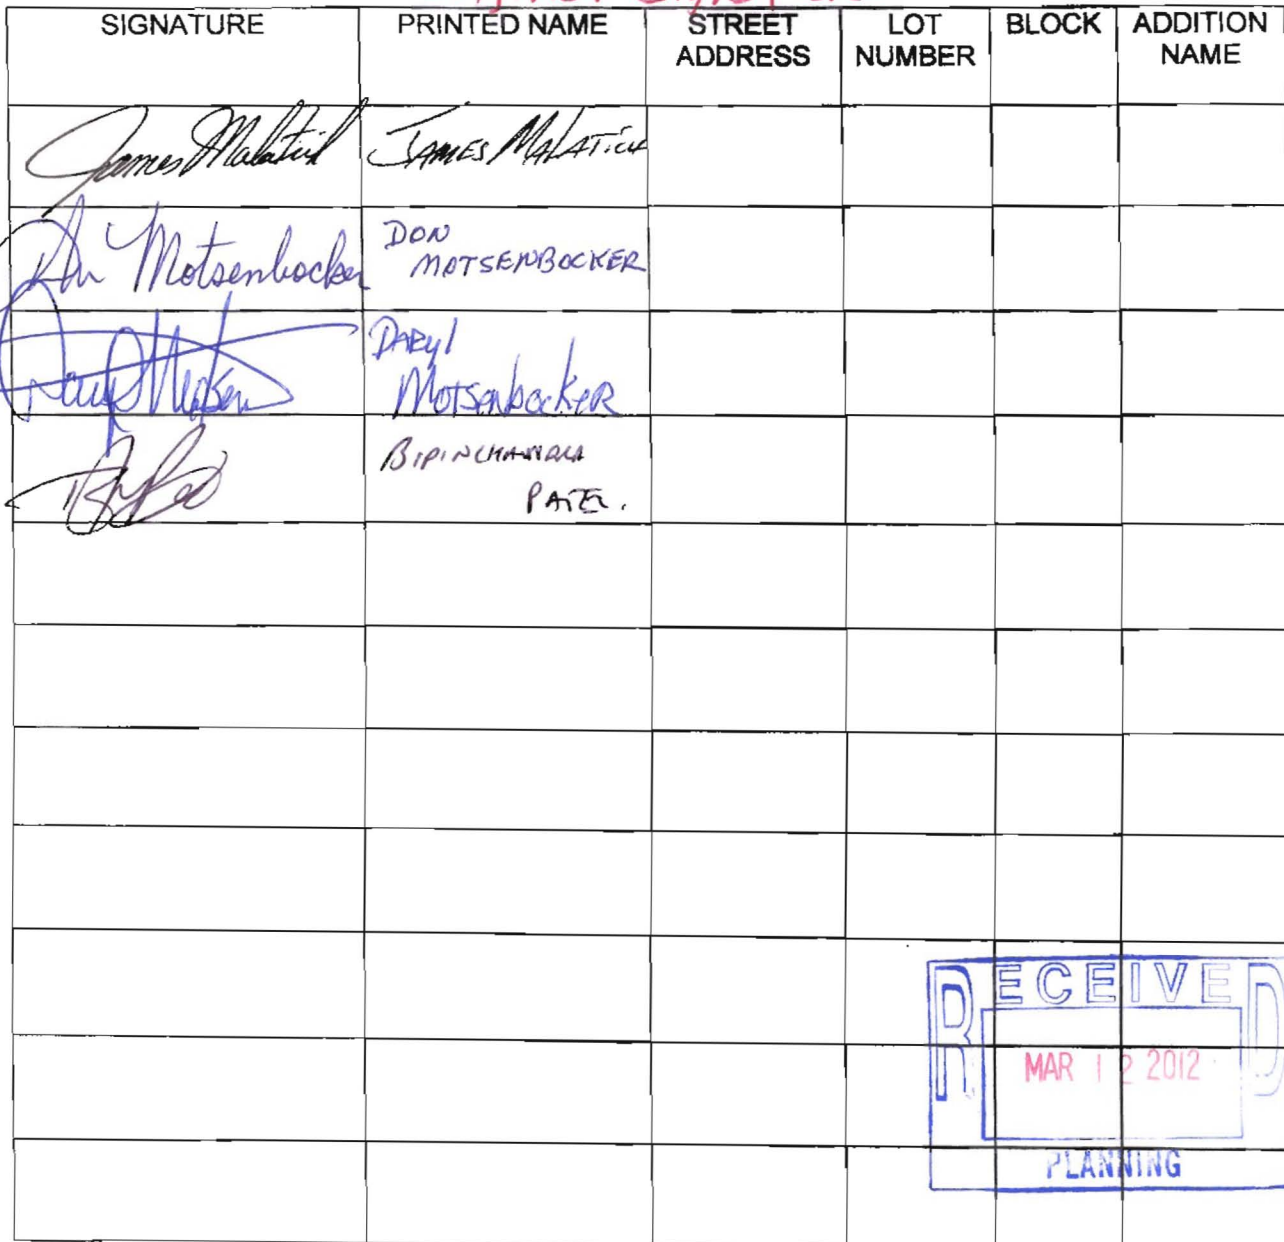 SIGNATURE PRINTED NAME STREET ADDRESS LOT NUMBER BLOCK ADDITION NAME
James Malatick JAMES MALATICK
Don Motsenbocker DON
MOTSENBOCKER
DARYl
MOTSENbocKER
BIPINCHANDRA
PATEL.
RECEIVED
MAR 12 2012
PLANNING